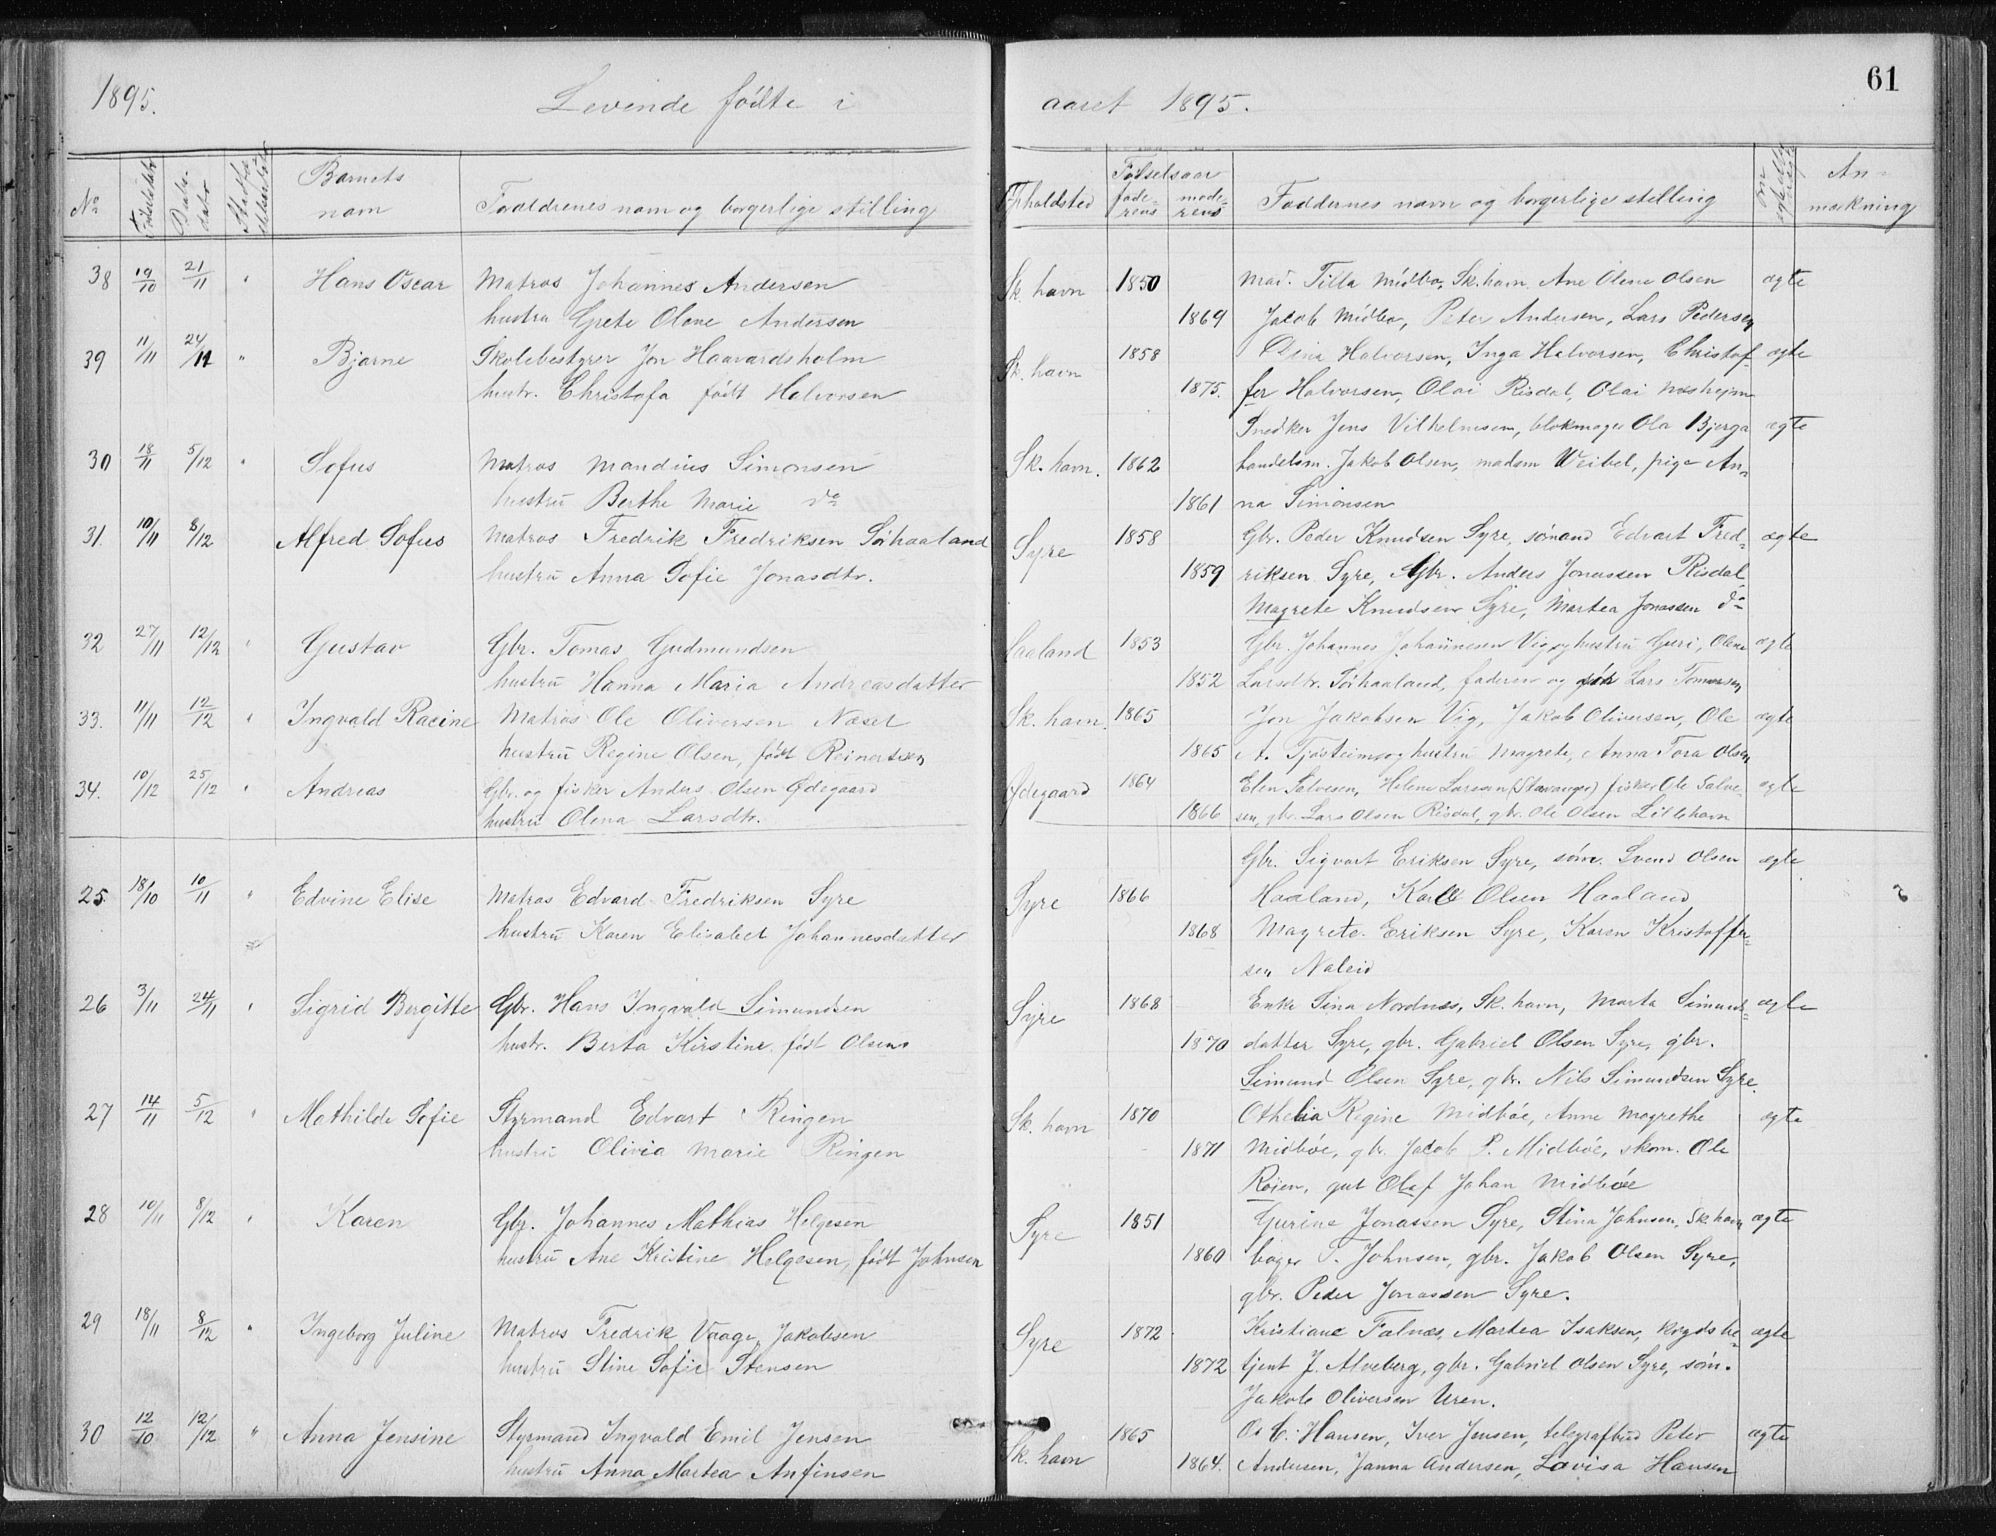 1895.
Levende fødte i
aaret 1895.
61
No
Fødselsdato
Daabsdato
Barnets
nam
Forældrenes nam og borgerlige stilling
Opholdsted
Fødselsaar
faderens
moderens
Faddernes navn og borgerlige stilling
Anmærkning
38 19/10 21/11 " Hans Oscar Matros Johannes Andersen Sk. havn 1850 Mad. Tilla Midbø, Sk. havn. Ane Olene Olsen ægte
hustru Grete Olene Andersen 1869 Jacob Midbø, Peter Andersen, Lars Pedersen
39 11/11 24/11 " Bjarne Skolebestyrer Jon Haavardsholm Sk. havn 1858 Dina Halvorsen, Inga Halvorsen, Christof- ægte
hustr. Christofa født Halvorsen 1875. fer Halvorsen, Olai Risdal, Olai
Snedker Jens Vilhelmsen, blokmager Ola Bjerga ægte
30 18/11 5/12 " Sofus Matros Mandius Simonsen Sk. havn. 1862 handelsm. Jakob Olsen, madam Weibel, pige An-
hustru Berthe Marie do 1861 na Simonsen
31. 10/11 8/12 Alfred Sofus Matros Fredrik Fredriksen Sørhaaland Syre 1858 Gbr. Peder Knudsen Syre, sømand Edvart Fred- ægte
hustru Anna Sofie Jonasdtr. 1859 riksen Syre, Gbr. Anders Jonassen Risdal
Magrete Knudsen Syre, Martea Jonassen do
32 27/11 12/12 " Gustav Gbr. Tomas Gudmundsen Haaland 1853 Gbr. Johannes Johannesen Vig og hustru Guri, Olene ægte
hustru Hanna Maria Andreasdatter 1852 Larsdtr. Sørhaaland, faderen og Lars Tomassen
33. 11/11 12/12 " Ingvald Racine Matros Ole Oliversen Næset Sk. havn. 1865 Jon Jakobsen Vig, Jakob Oliversen, Ole ægte
hustru Regine Olsen, født Reinertsen 1865 A. Tjøsteim og hustru Magrete, Anna Tora Olsen
34. 10/12 25/12 " Andreas Gbr. og fisker Anders Olsen Ødegaard Ødegaard 1864 Elen Salvesen, Helene Larsen (Stavanger) fisker Ole Salve- ægte
hustru Olena Larsdtr. 1866 sen, gbr. Lars Olsen Risdal, gbr. Ole Olsen Lillehavn
Gbr. Sigvart Eriksen Syre, søm. Svend Olsen ægte
25. 18/10 10/11 " Edvine Elise Matros Edvard Fredriksen Syre Syre 1866 Haaland, Karl Olsen Haaland
hustru Karen Elisabet Johannesdatter 1868 Magrete Eriksen Syre, Karen Kristoffer-
sen Naleid
26 3/11 24/11 " Sigrid Bergitte Gbr. Hans Ingvald Simundsen Syre 1868 Enke Sina Nordnæs, Sk. havn, Marta Simunds- ægte
hustr. Berta Kirstine født Olsen 1870 datter Syre, gbr. Gabriel Olsen Syre, gbr.
Simund Olsen Syre, gbr. Nils Simundsen Syre.
27 14/11 5/12 " Mathilde Sofie Styrmand Edvart Ringen Sk. havn 1870 Othelia Regine Midbøe, Anne Magrethe ægte
hustru Olivia Marie Ringen 1871 Midbøe, gbr. Jacob P. Midbøe, skom. Ole
Røien, gut Olaf Johan Midbøe
28 10/11 8/12 " Karen Gbr. Johannes Mathias Helgesen Syre 1851 Gurine Jonassen Syre, Stina Johnsen, Sk. havn ægte
hustru Ane Kristine Helgesen, født Johnsen 1860 bager T. Johnsen, gbr. Jakob Olsen Syre,
gbr. Peder Jonassen Syre.
29 18/11 8/12 " Ingeborg Juline Matros Fredrik Vaage Jakobsen Syre 1872 Kristiane Falnæs, Martea Isaksen, krydsbe- ægte
hustru Stine Sofie Stensen 1872 tjent J. Alveberg, gbr. Gabriel Olsen Syre, søm.
Jakob Oliversen Uren.
30 12/10 12/12 " Anna Jensine Styrmand Ingvald Emil Jensen Sk. havn 1865 O. C. Hansen, Iver Jensen, telegrafbud Peter ægte
hustru Anna Martea Anfinsen 1864. Andersen, Janna Andersen, Lovisa Hansen